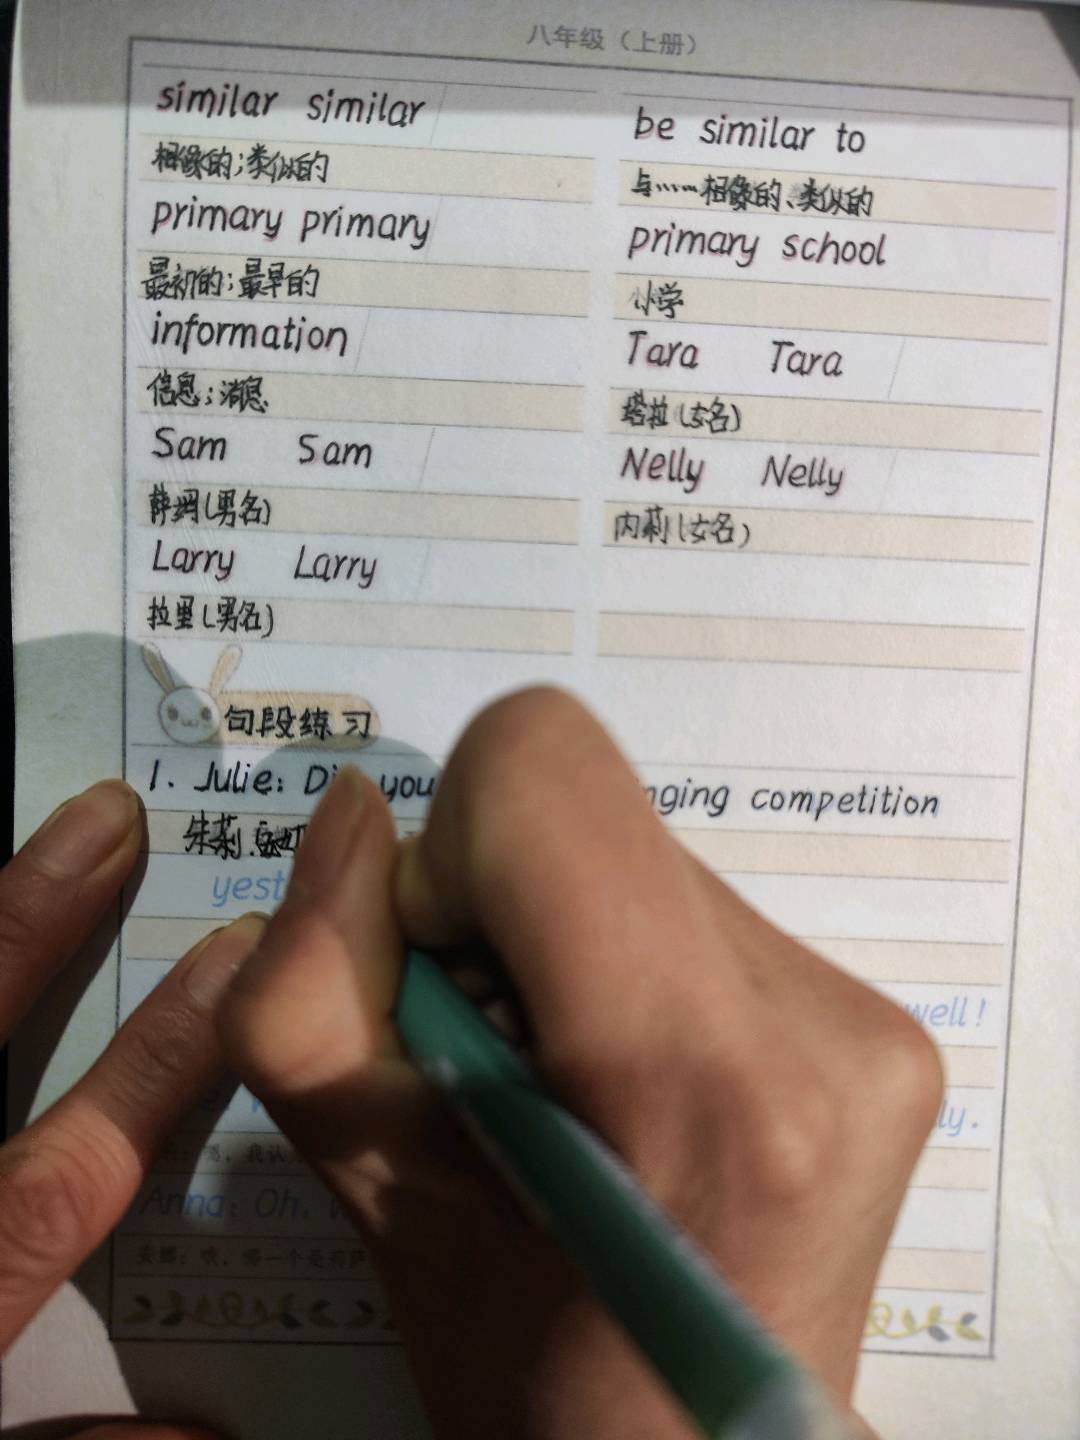 八年级（上册）
similar similar
相像的;类似的
primary primary
最初的;最早的
information
信息;消息
Sam Sam
萨姆(男名)
Larry Larry
拉里(男名)
be similar to
与……相像的、类似的
primary school
小学
Tara Tara
塔拉(女名)
Nelly Nelly
内莉(女名)
句段练习
1. Julie: you competition
朱莉
well!
我认
Anna: Oh,
安娜：哦，哪一个是